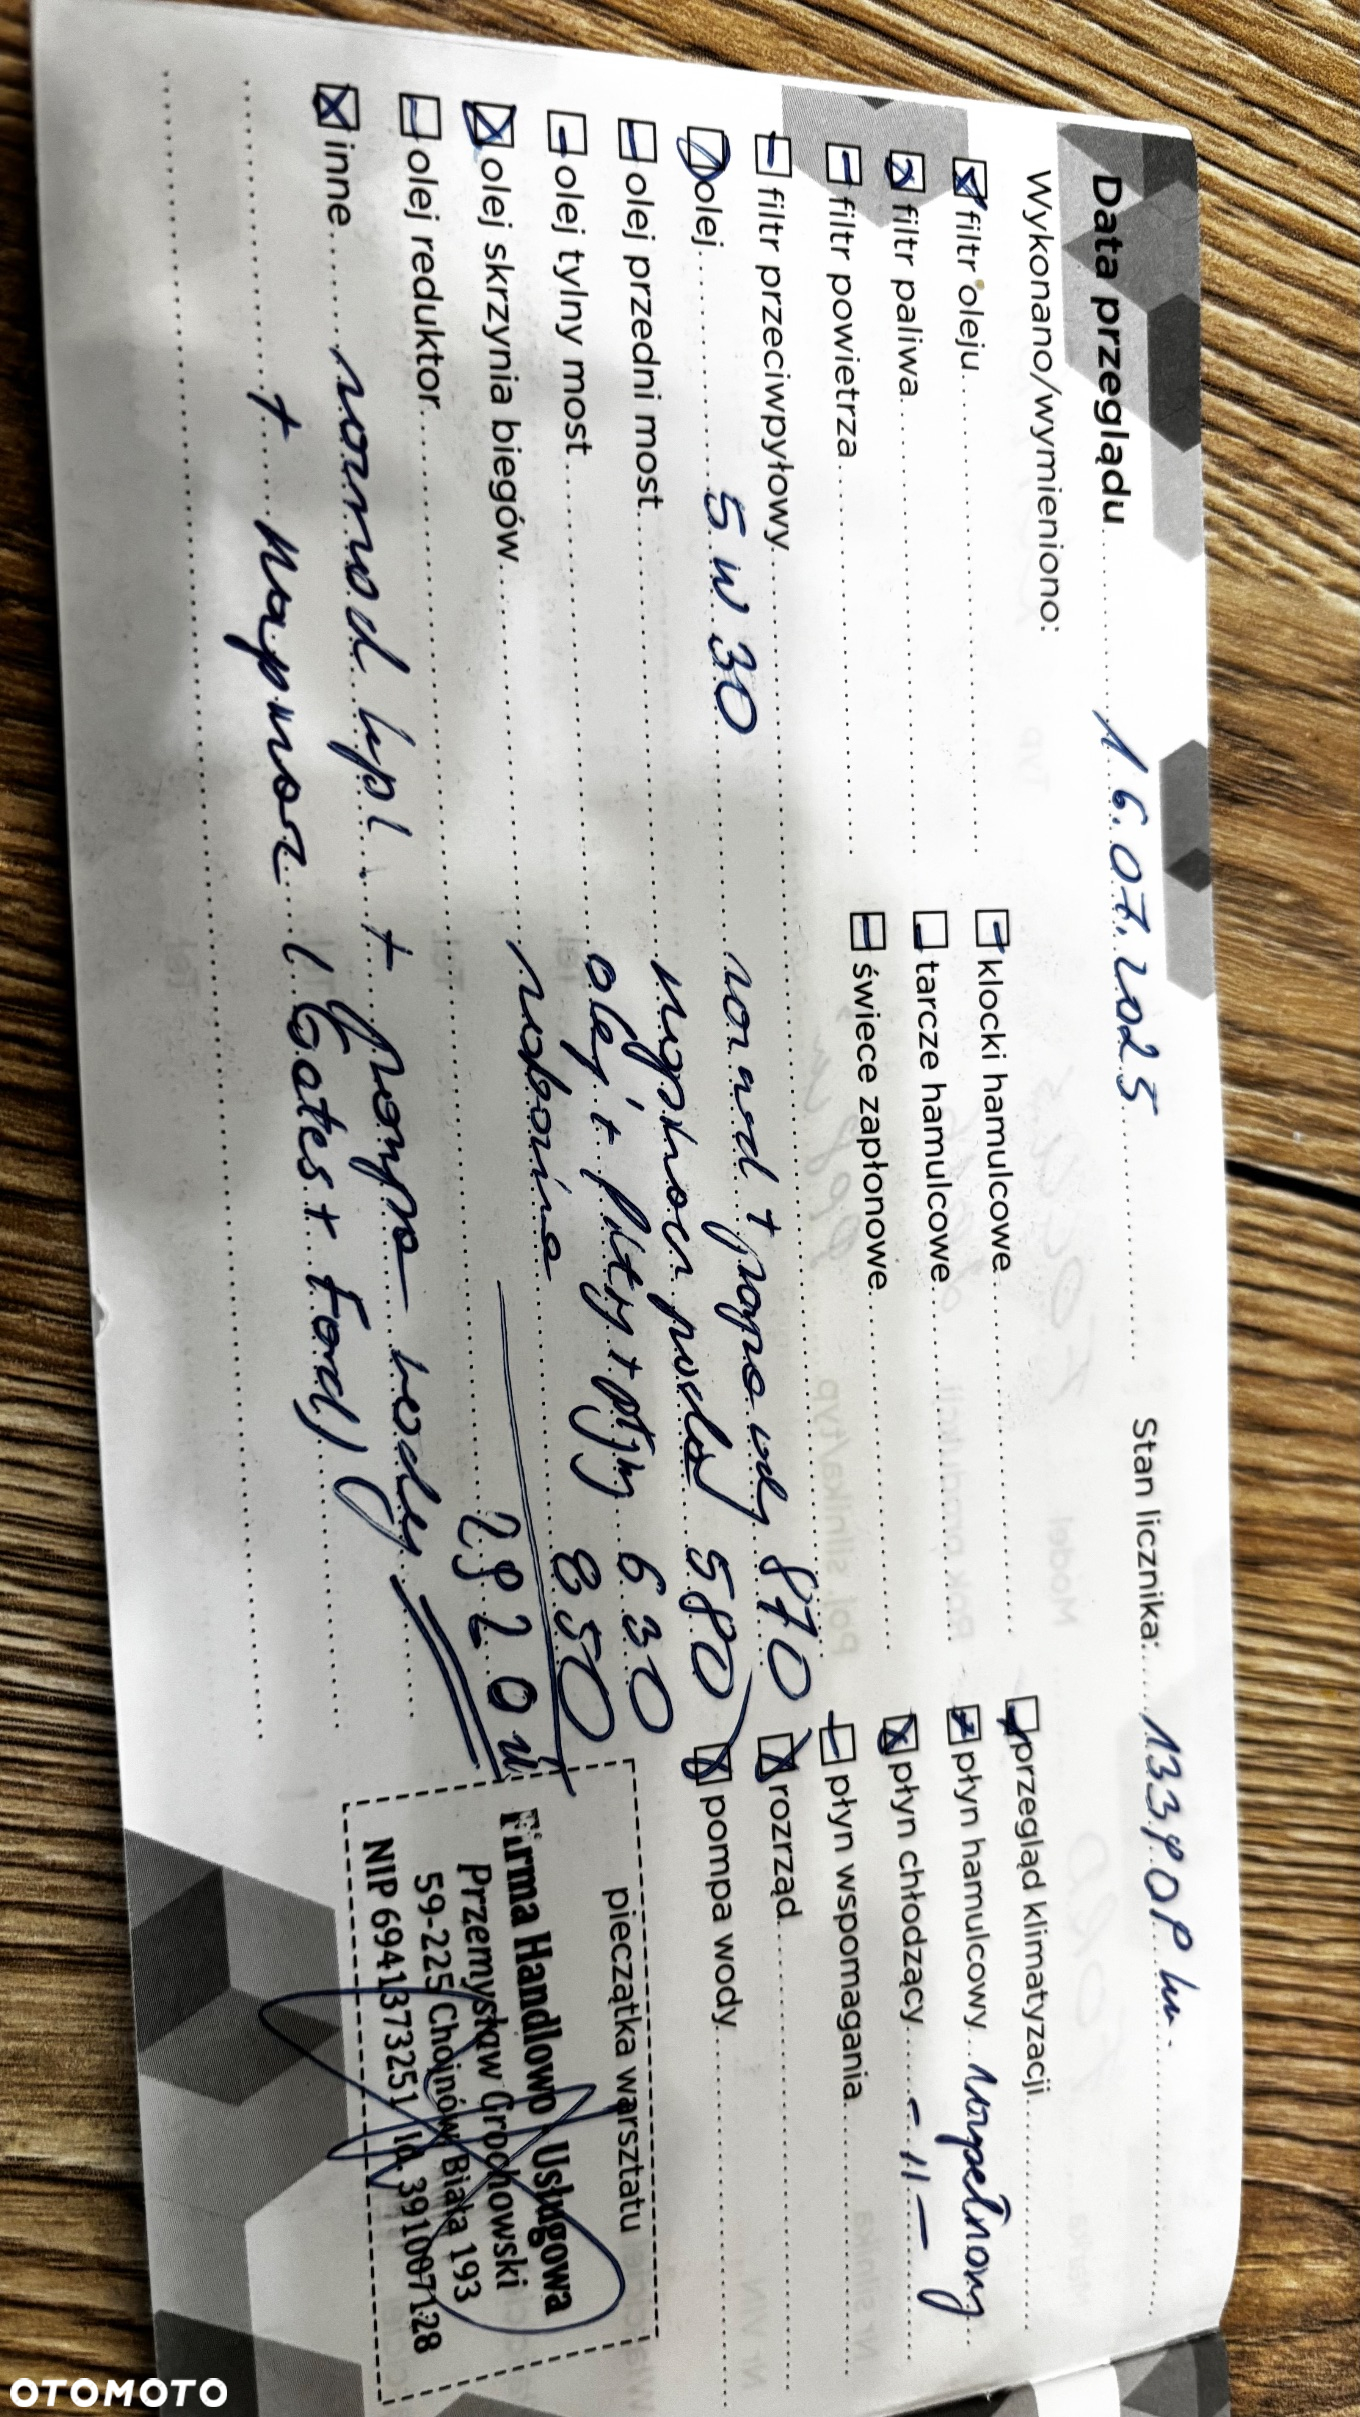 Data przeglądu 16.07.2025 Stan licznika: 133908 km
Wykonano/wymieniono:
filtr oleju
filtr paliwa
filtr powietrza
filtr przeciwpyłowy
klocki hamulcowe
tarcze hamulcowe
świece zapłonowe
przegląd klimatyzacji
płyn hamulcowy uzupełniony
płyn chłodzący -11-
płyn wspomagania
rozrząd
pompa wody
olej 5W30
olej przedni most
olej tylny most
olej skrzynia biegów
olej reduktor
rozrząd + pompa wody 870
napinacz 580
olej + filtry + płyny 630
robocizna 850
2920 zł
inne rozrząd kpl + pompa wody
+ napinacz (Gates + Ford)
pieczątka warsztatu
Firma Handlowo Usługowa
Przemysław Grochowski
59-225 Chojnów, Biała 193
NIP 6941373251 Id. 391007128
OTOMOTO